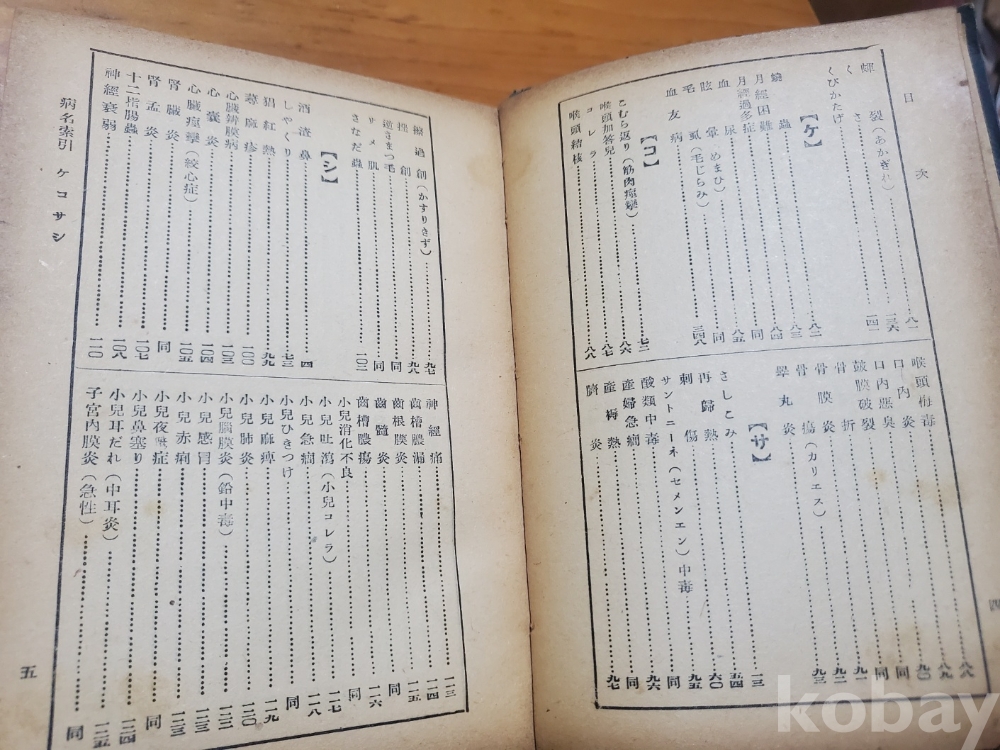 目次
輝裂(あかぎれ)……八二
くさ……一三六
くびかたげ……一四一
【ケ】
蟯蟲……八二
月經困難……八三
月經過多症……八四
血尿……同
眩暈(めまひ)……八五
毛虱(毛じらみ)……三四八
血友病
【コ】
こむら返り(筋肉痙攣)……七二
喉頭加答兒……八六
コレラ……八七
喉頭結核……八八
喉頭梅毒……八八
口内炎……八九
口内悪臭……九〇
鼓膜破裂……同
骨折……同
骨膜炎……九一
骨瘍(カリエス)……九二
睾丸炎……九三
【サ】
さしこみ……一三
再歸熱……五四
刺傷……六〇
サントニーネ(セメンエン)中毒……九五
酸類中毒……同
産婦急癇……九六
産褥熱……同
臍炎……九七
四
擦過創(かすりきず)……九七
挫創……九八
逆さまつ毛……同
サメ肌……同
さなだ蟲……一〇二
【シ】
酒渣鼻……四
しやくり……七三
猩紅熱……九九
蕁麻疹……一〇〇
心臓瓣膜病……一〇三
心嚢炎……一〇四
心臓痙攣(絞心症)……一〇五
腎臓炎……同
腎盂炎……一〇七
十二指腸蟲……一〇八
神經衰弱……一一〇
神經痛……一一三
齒槽膿漏……一一四
齒根膜炎……一一五
齒髓炎……一一六
齒槽膿瘍……同
小兒消化不良……一一七
小兒吐瀉(小兒コレラ)……一一八
小兒急癇……同
小兒ひきつけ……一一九
小兒麻痺……一二〇
小兒肺炎……同
小兒腦膜炎(鉛中毒)……一二二
小兒感冒……一二三
小兒赤痢……同
小兒夜驚症
小兒鼻塞り……一二四
小兒耳だれ(中耳炎)……一二五
子宮内膜炎(急性)……同
病名索引 ケコサシ
五
kobay